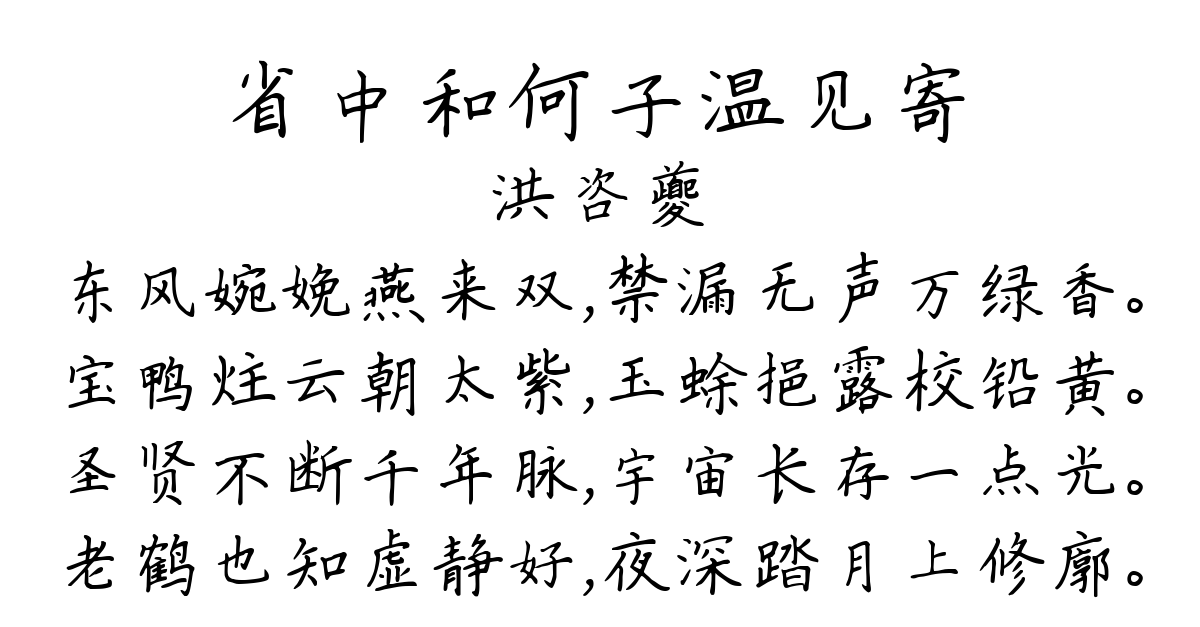 省中和何子温见寄
洪咨夔
东风婉娩燕来双,禁漏无声万绿香。
宝鸭炷云朝太紫,玉蜍挹露校铅黄。
圣贤不断千年脉,宇宙长存一点光。
老鹤也知虚静好,夜深踏月上修廓。